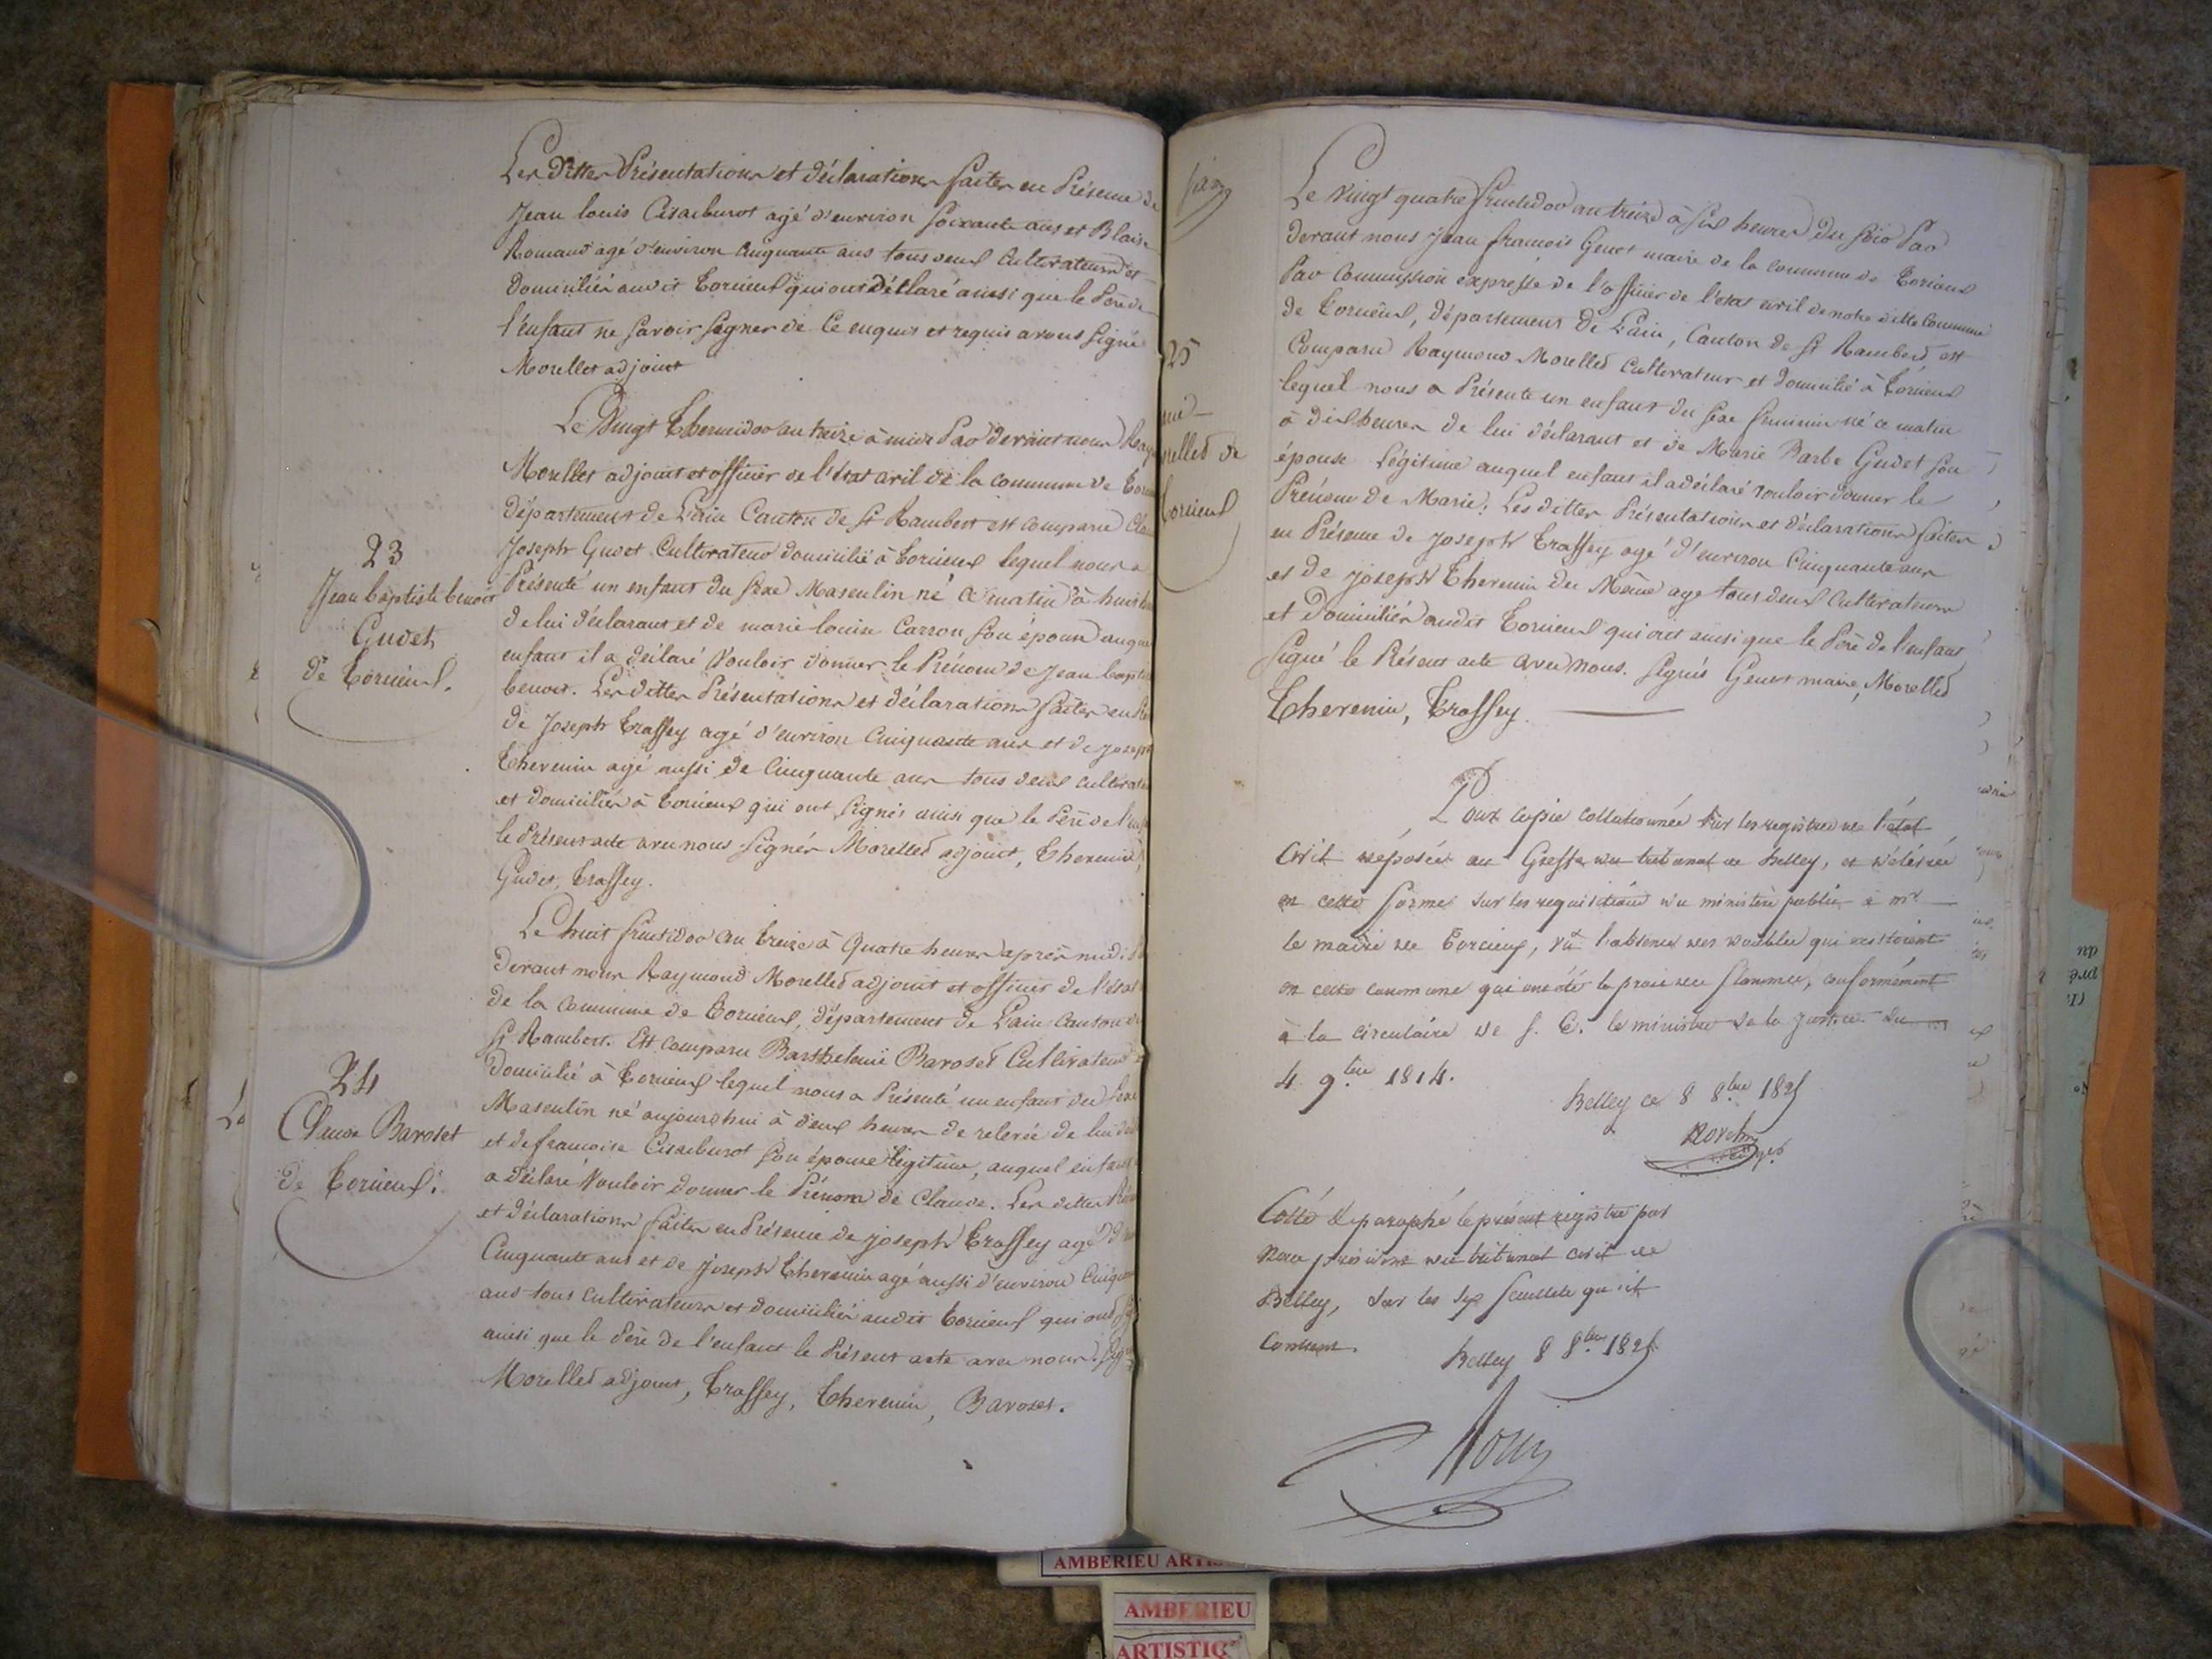 Les dittes Présentations et déclarations faites en Présence de
Jean louis Cisaeburot agé d'environ soixante ans et Blaise
Romand agé d'environ cinquante ans tous deux cultivateurs et
domiciliés audit Torcieux qui ont déclaré ainsi que le Père de
l'enfant ne savoir signer de ce enquis et requis avons signé
Morellet adjoint
23
Jean baptiste benoit
Gudet
de Torcieux.
Le Vingt Thermidor an treize à midi Par devant nous
Morellet adjoint et officier de l'état civil de la commune de
département de L'ain Canton de St Rambert est comparu
Joseph Gudet Cultivateur domicilié à Torcieux lequel nous a
Présenté un enfant du sexe Masculin né ce matin à huit
de lui déclarant et de marie louise Carron son épouse
enfant il a déclaré Vouloir donner le Prénom de Jean
benoit. Les dittes Présentations et déclarations faites en
de Joseph Trassey agé d'environ cinquante ans et de
Therenin agé aussi de cinquante ans tous deux
et domiciliés à Torcieux qui ont signés ainsi que le Père de
le Présent acte avec nous signés Morellet adjoint, Therenin,
Gudet, Trassey.
24
Claude Baroset
de Torcieux.
Le huit fructidor an treize à Quatre heures après midi
devant nous Raymond Morellet adjoint et officier de l'état
de la commune de Torcieux, département de L'ain Canton de
St Rambert. Est comparu Barthelemi Baroset Cultivateur
domicilié à Torcieux lequel nous a Présenté un enfant du sexe
Masculin né aujourdhui à deux heures de relevée de lui
et de francoise Cisaeburot son épouse légitime, auquel enfant
a déclaré Vouloir donner le Prénom de Claude. Les dittes
et déclarations faites en Présence de joseph Trassey agé
Cinquante ans et de joseph Therenin agé aussi d'environ
ans tous cultivateurs et domiciliés audit Torcieux qui ont
ainsi que le Père de l'enfant le Présent acte avec nous.
Morellet adjoint, Trassey, Therenin, Baroset.
25
Torcieux
Le Vingt quatre fructidor an treize à six heures du soir Par
devant nous Jean francois Genet maire de la commune de Torcieux
Par Commission expresse de l'officier de l'etat civil de notre ditte commune
de Torcieux, département de L'ain, Canton de St Rambert est
Comparu Raymond Morellet Cultivateur et domicilié à Torcieux
lequel nous a Présenté un enfant du sexe feminin né ce matin
à dix heures de lui déclarant et de Marie Barbe Gudet son
épouse Légitime auquel enfant il a déclaré vouloir donner le
Prénom de Marie. Les dittes Présentations et déclarations faites
en Présence de Joseph Trassey agé d'environ Cinquante ans
et de joseph Therenin du Même age tous deux cultivateurs
et domiciliés audit Torcieux qui ont ainsi que le Père de l'enfant
signé le Présent acte avec nous. Signés Genet maire, Morellet
Therenin, Trassey.
Pour copie collationnée sur les registres de l'état
Civil déposés au Greffe du tribunal de Belley, et délivrée
en cette forme sur les requisitions du ministère public à mr
le maire de Torcieux, vû l'absence des doubles qui existoient
en cette commune qui ont été la proie des flammes, conformément
à la circulaire de S. E. le ministre de la justice du
4 9.bre 1814.
Belley ce 8 8.bre 182
Coté & paraphé le présent registre par
Nous président du tribunal civil de
Belley, sur les six feuillets qu'il
Contient.
Belley 8 8.bre 182
AMBERIEU
AMBERIEU
ARTISTIQ